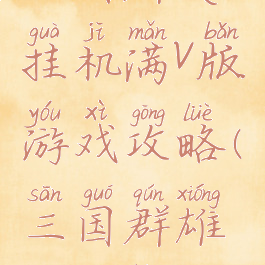 guà jī mǎn bǎn
挂机满V版
yóu xì gōng lüè
游戏攻略(
sān guó qún xióng
三国群雄